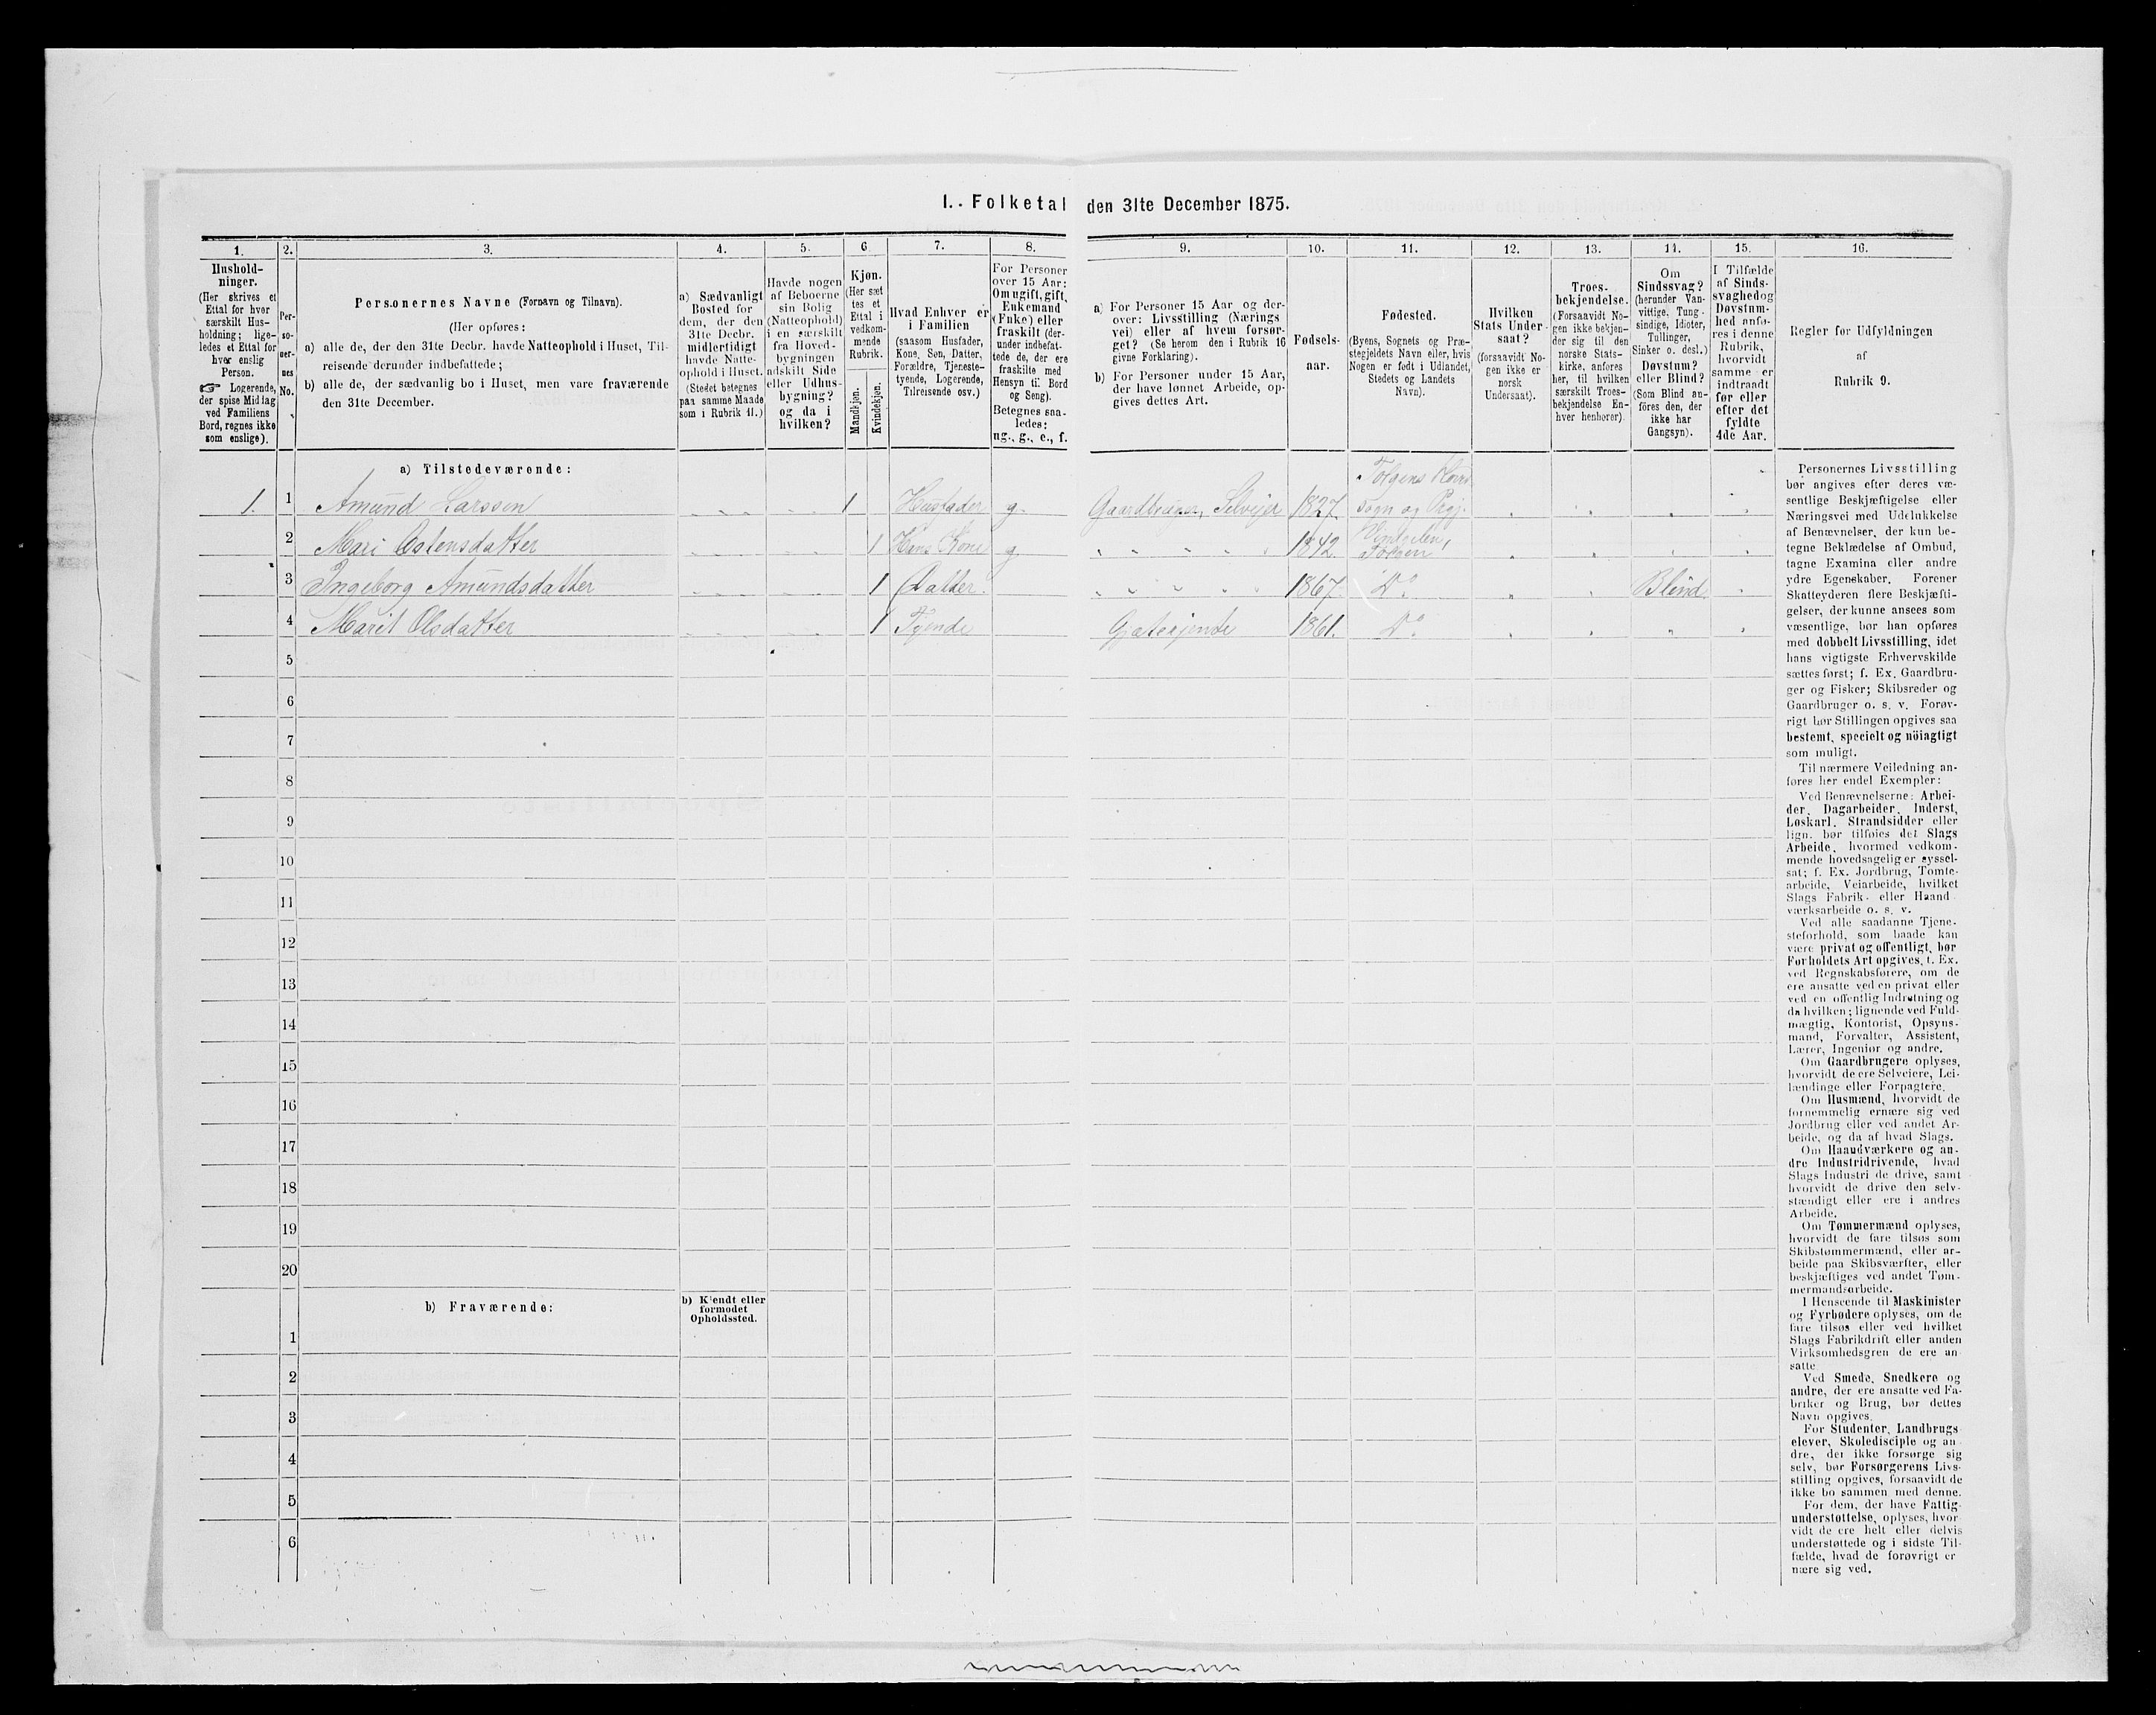 I. Folketal den 31te December 1875.
1.
Hushold-
ninger.
(Her skrives et
Ettal for hver
særskilt Hus-
holdning; lige-
ledes et Ettal for
hver enslig
Person.
☞ Logerende,
der spise Middag
ved Familiens
Bord, regnes ikke
som enslige).
2.
Per-
so-
ner-
nes
No.
3.
Personernes Navne (Fornavn og Tilnavn).
(Her opføres:
a) alle de, der den 31te Decbr. havde Natteophold i Huset, Til-
reisende derunder indbefattede;
b) alle de, der sædvanlig bo i Huset, men vare fraværende
den 31te December.
4.
a) Sædvanligt
Bosted for
dem, der den
31te Decbr.
midlertidigt
havde Natte-
ophold i Huset.
(Stedet betegnes
paa samme Maade
som i Rubrik 11.)
5.
Havde nogen
af Beboerne
sin Bolig
(Natteophold)
i en særskilt
fra Hoved-
bygningen
adskilt Side
eller Udhus-
bygning?
og da i
hvilken?
6
Kjøn.
(Her sæt
tes et
Ettal i
vedkom-
mende
Rubrik.
Mandkjøn.
Kvindekjøn.
7.
Hvad Enhver er
i Familien
(saasom Husfader,
Kone, Søn, Datter,
Forældre, Tjeneste-
tyende, Logerende,
Tilreisende osv.)
8.
For Personer
over 15 Aar:
Om ugift, gift,
Enkemand
(Enke) eller
fraskilt (der-
under indbefat-
tede de, der ere
fraskilte med
Hensyn til Bord
og Seng).
Betegnes saa-
ledes:
ug., g., e., f.
9.
a) For Personer 15 Aar og der-
over: Livsstilling (Nærings
vei) eller af hvem forsør-
get? (Se herom den i Rubrik 16
givne Forklaring).
b) For Personer under 15 Aar,
der have lønnet Arbeide, op-
gives dettes Art.
10.
Fødsels-
aar.
11.
Fødested.
(Byens, Sognets og Præ-
stegjeldets Navn eller, hvis
Nogen er født i Udlandet,
Stedets og Landets
Navn).
12.
Hvilken
Stats Under-
saat?
(forsaavidt No-
gen ikke er
norsk
Undersaat).
13.
Troes-
bekjendelse.
(Forsaavidt No-
gen ikke bekjen-
der sig til den
norske Stats-
kirke, anføres
her, til hvilken
særskilt Troes-
bekjendelse En-
hver henhører).
14.
Om
Sindssvag?
(herunder Van-
vittige, Tung-
sindige, Idioter,
Tullinger,
Sinker o. desl.)
Døvstum?
eller Blind?
(Som Blind an-
føres den, der
ikke har
Gangsyn).
15.
I Tilfælde
af Sinds-
svaghed og
Døvstum-
hed anfø-
res i denne
Rubrik,
hvorvidt
samme er
indtraadt
før eller
efter det
fyldte
4de Aar.
16.
Regler for Udfyldningen
af
Rubrik 9.
a) Tilstedeværende:
1. 1 Amund Larssen 1 Husfader g. Gaardbruger, Selvejer 1827 Tolgens Hoved Sogn og Prgj.
2 Mari Estensdatter 1 Hans Kone g. 1842 Vingelen, Tolgen
3 Ingeborg Amundsdatter 1 Datter 1867. Do Blind
4 Marit Olsdatter 1 Tyende Gjæterjente 1861. Do
5
6
7
8
9
10
11
12
13
14
15
16
17
18
19
20
b) Fraværende:
b) Kjendt eller
formodet
Opholdssted.
1
2
3
4
5
6
Personernes Livsstilling
bør angives efter deres væ-
sentlige Beskjæftigelse eller
Næringsvei med Udelukkelse
af Benævnelser, der kun be-
tegne Beklædelse af Ombud,
tagne Examina eller andre
ydre Egenskaber. Forener
Skatteyderen flere Beskjæfti-
gelser, der kunne ansees som
væsentlige, bør han opføres
med dobbelt Livsstilling, idet
hans vigtigste Erhvervskilde
sættes først; f. Ex. Gaardbru-
ger og Fisker; Skibsreder og
Gaardbruger o. s. v. Forøv-
rigt bør Stillingen opgives saa
bestemt, specielt og nöiagtigt
som muligt.
Til nærmere Veiledning an-
føres her endel Exempler:
Ved Benævnelserne: Arbei-
der, Dagarbeider, Inderst,
Løskarl, Strandsidder eller
lign. bør tilføies det Slags
Arbeide, hvormed vedkom-
mende hovedsagelig er syssel-
sat; f. Ex. Jordbrug, Tomte-
arbeide, Veiarbeide, hvilket
Slags Fabrik- eller Haand-
værksarbeide o. s. v.
Ved alle saadanne Tjene-
steforhold, som baade kan
være privat og offentligt, bør
Forholdets Art opgives, f. Ex.
ved Regnskabsførere, om de
ere ansatte ved en privat eller
ved en offentlig Indretning og
da hvilken; lignende ved Fuld-
mægtig, Kontorist, Opsyns-
mand, Forvalter, Assistent,
Lærer, Ingeniør og andre.
Om Gaardbrugere oplyses,
hvorvidt de ere Selveiere, Lei-
lændinge eller Forpagtere.
Om Husmænd, hvorvidt de
fornemmelig ernære sig ved
Jordbrug eller ved andet Ar-
beide, og da af hvad Slags.
Om Haandværkere og an-
dre Industridrivende, hvad
Slags Industri de drive, samt
hvorvidt de drive den selv-
stændigt eller ere i andres
Arbeide.
Om Tømmermænd oplyses,
hvorvidt de fare tilsøs som
Skibstømmermænd, eller ar-
beide paa Skibsværfter, eller
beskjæftiges ved andet Tøm-
mermandsarbeide.
I Henseende til Maskinister
og Fyrbødere oplyses, om de
fare tilsøs eller ved hvilket
Slags Fabrikdrift eller anden
Virksomhedsgren de ere an-
satte
Ved Smede, Snedkere og
andre, der ere ansatte ved Fa-
briker og Brug, bør dettes
Navn opgives.
For Studenter, Landbrugs-
elever, Skoledisciple og an-
dre, der ikke forsørge sig
selv, bør Forsørgerens Livs-
stilling opgives, forsaavidt de
ikke bo sammen med denne.
For dem, der have Fattig-
understøttelse, oplyses, hvor-
vidt de ere helt eller delvis
understøttede og i sidste Til-
fælde, hvad de forøvrigt er
nære sig ved.